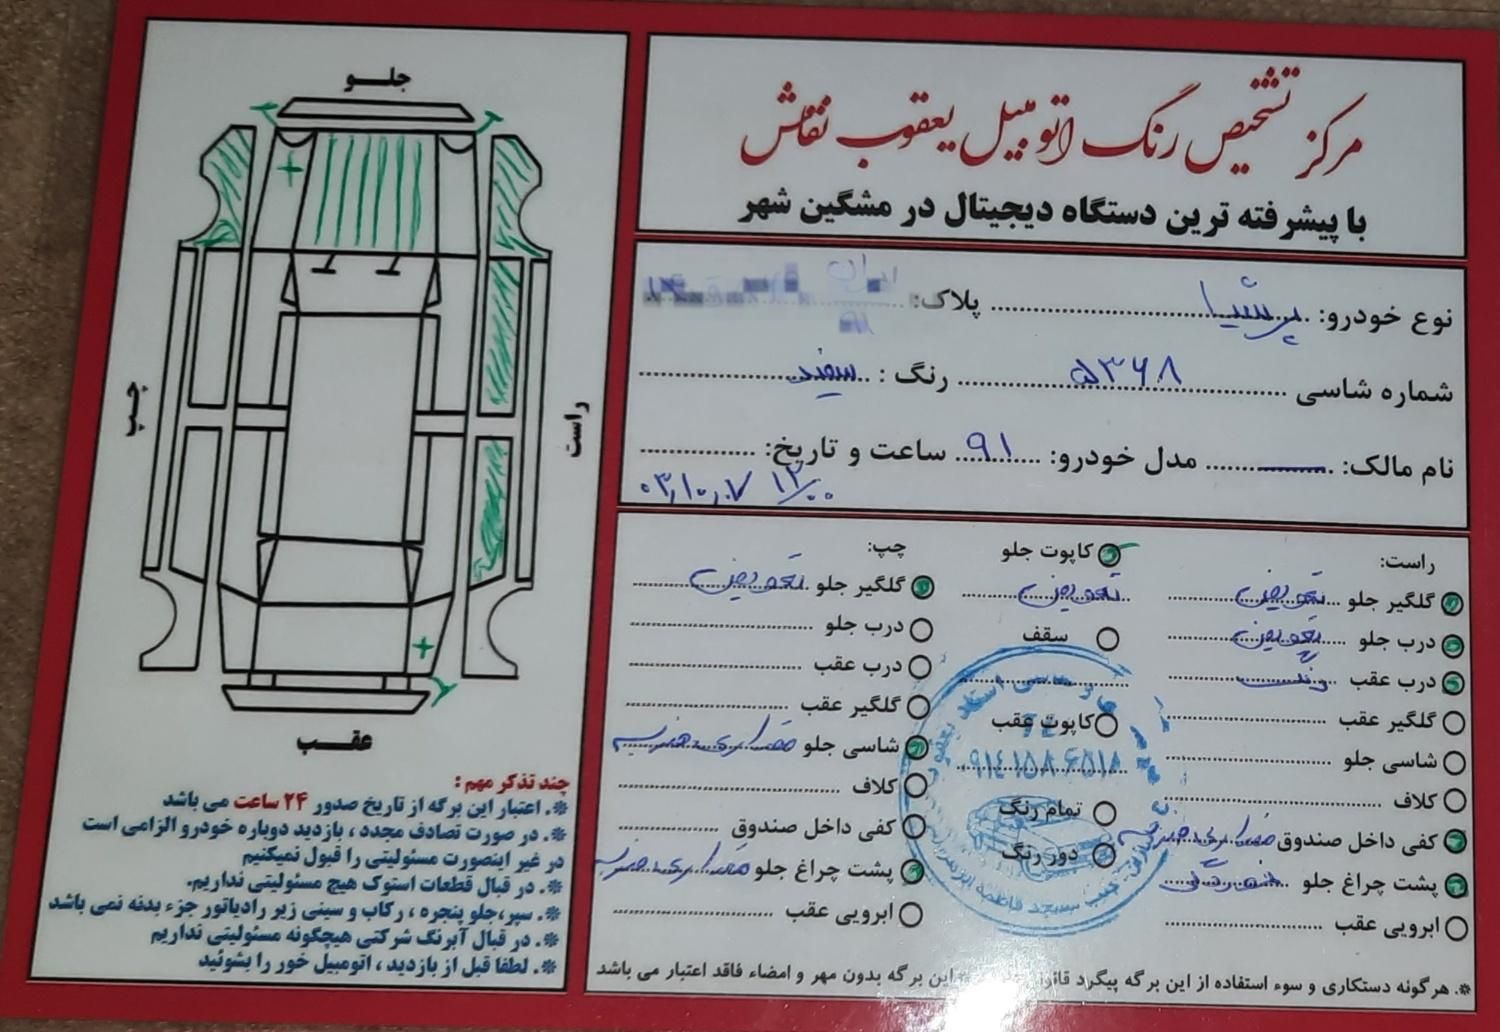 مرکز تشخیص رنگ اتومبیل یعقوب نقاش
با پیشرفته ترین دستگاه دیجیتال در مشگین شهر
نوع خودرو: پرشیا پلاک:
شماره شاسی ۵۳۶۸ رنگ : سفید
نام مالک: مدل خودرو: ۹۱ ساعت و تاریخ:
۰۳,۱۰,۰۷ ۱۲/۰۰
جلـــو
چپ
راست
عقـــب
چند تذکر مهم :
*. اعتبار این برگه از تاریخ صدور ۲۴ ساعت می باشد
*. در صورت تصادف مجدد ، بازدید دوباره خودرو الزامی است
در غیر اینصورت مسئولیتی را قبول نمیکنیم
*. در قبال قطعات استوک هیچ مسئولیتی نداریم.
*. سپر،جلو پنجره ، رکاب و سینی زیر رادیاتور جزء بدنه نمی باشد
*. در قبال آبرنگ شرکتی هیچگونه مسئولیتی نداریم
*. لطفا قبل از بازدید ، اتومبیل خور را بشوئید
راست:
گلگیر جلو تعویض
درب جلو تعویض
درب عقب رنگ
گلگیر عقب
شاسی جلو
کلاف
کفی داخل صندوق مقداری ضربه
پشت چراغ جلو
ابرویی عقب
کاپوت جلو
تعویض
سقف
کاپوت عقب
تمام رنگ
دور رنگ
۰۹۱۴۱۵۸۶۵۱۸
چپ:
گلگیر جلو تعویض
درب جلو
درب عقب
گلگیر عقب
شاسی جلو مقداری ضربه
کلاف
کفی داخل صندوق
پشت چراغ جلو مقداری ضربه
ابرویی عقب
*. هرگونه دستکاری و سوء استفاده از این برگه پیگرد این برگه بدون مهر و امضاء فاقد اعتبار می باشد